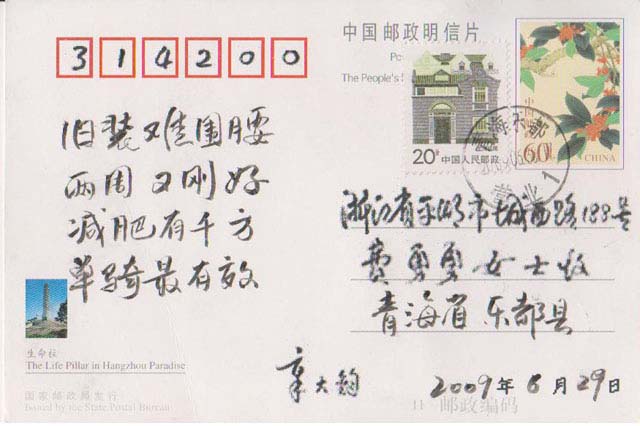 中国邮政明信片
314200
Po
The People's
20分 中国人民邮政
中国
60分
CHINA
青海乐都
营业1
旧装难围腰
两周又刚好
减肥有千方
单骑最有效
浙江省平湖市城西路188号
费勇勇女士收
青海省乐都县
生命柱
The Life Pillar in Hangzhou Paradise
国家邮政局发行
Issued by the State Postal Bureau
大钧
2009年6月29日
11 邮政编码